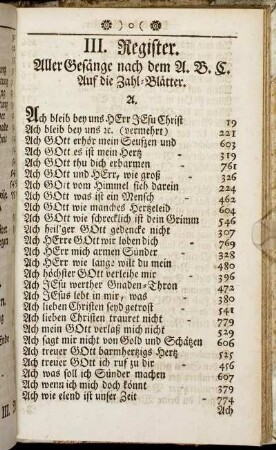 III. Register.
Aller Gesänge nach dem A. B. C.
Auf die Zahl-Blätter.
A.
Ach bleib bey uns HErr JEsu Christ 19
Ach bleib bey uns ꝛc. (vermehrt) 221
Ach GOtt erhör mein Seufzen und 603
Ach GOtt es ist mein Hertz 319
Ach GOtt thu dich erbarmen 761
Ach GOtt und HErr, wie groß 326
Ach GOtt vom Himmel sieh darein 224
Ach GOtt was ist ein Mensch 462
Ach GOtt wie manches Hertzeleid 604
Ach GOtt wie schrecklich ist dein Grimm 546
Ach heil'ger GOtt gedencke nicht 307
Ach HErre GOtt wir loben dich 769
Ach HErr mich armen Sünder 328
Ach HErr wie lange wilt du mein 480
Ach höchster GOtt verleihe mir 396
Ach JEsu werther Gnaden-Thron 472
Ach JEsus lebt in mir, was 380
Ach lieben Christen seyd getrost 541
Ach lieben Christen trauret nicht 779
Ach mein GOtt verlaß mich nicht 529
Ach sagt mir nicht von Gold und Schätzen 606
Ach treuer GOtt barmhertzigs Hertz 525
Ach treuer GOtt ich ruf zu dir 456
Ach was soll ich Sünder machen 607
Ach wenn ich mich doch könnt 379
Ach wie elend ist unser Zeit 774
Ach